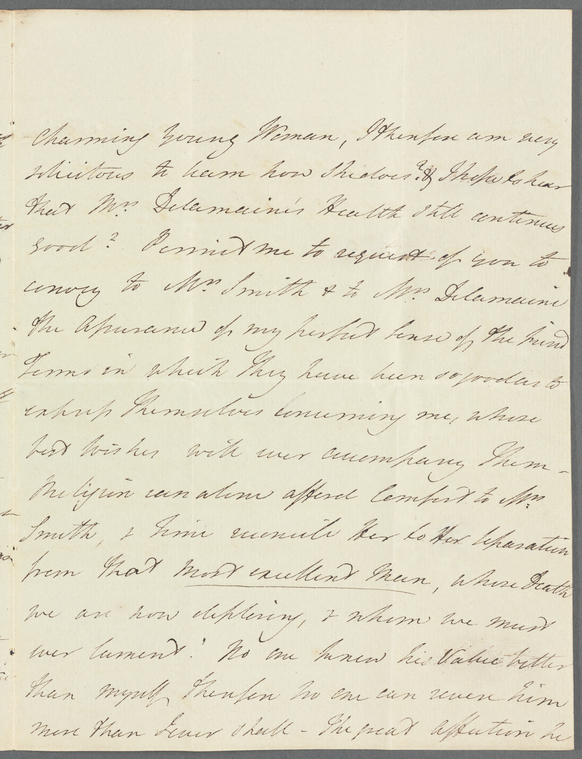 charming young Woman, I therefore am very
solicitous to learn how she does? & I hope to hear
that Mrs. Delamaine's Health still continues
good? Permit me to request of you to
convey to Mrs. Smith & to Mrs. Delamaine
the Assurance of my perfect sense of the kind
terms in which they have been so good as to
express themselves concerning me, whose
best wishes will ever accompany them -
Religion can alone afford Comfort to Mrs.
Smith, & time reconcile Her to Her separation
from that most excellent Man, whose Death
we are now deploring, & whom we must
ever lament! No one knew his Value better
than myself, therefore no one can revere him
more than I ever shall - The great affection he